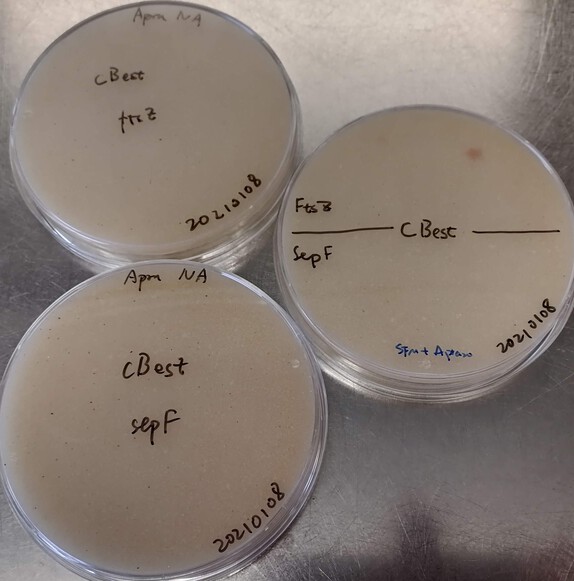 Apra NA
cBest
ftsZ
20210108
FtsZ
CBest
SepF
SFM + Apra50
20210108
Apra NA
cBest
sepF
20210108